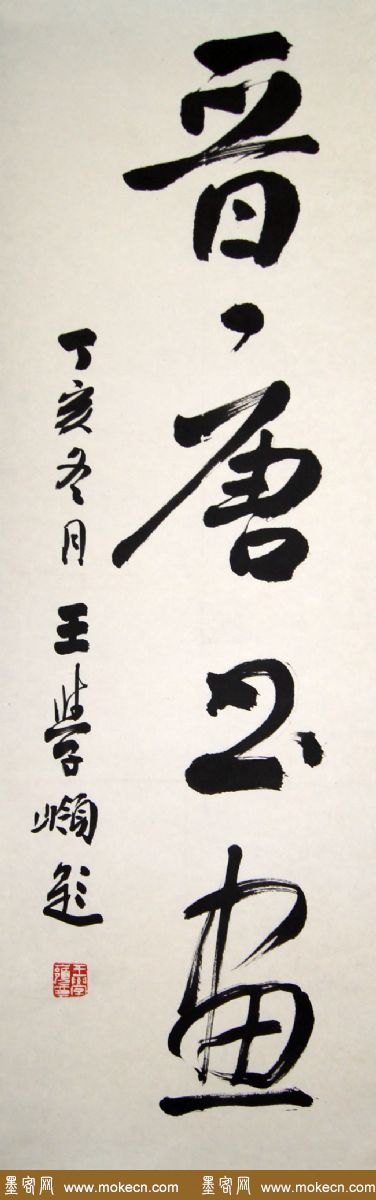 晋唐书画
丁亥冬月 王学岭题
墨客网 www.mokecn.com 墨客网 www.mokecn.com